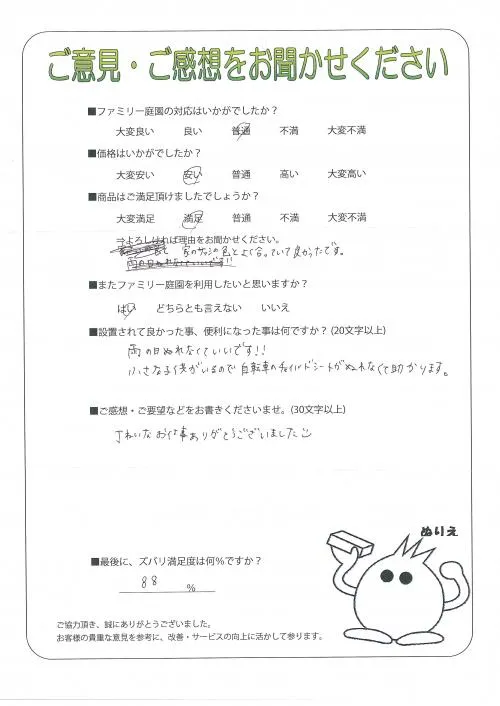 ご意見・ご感想をお聞かせください
■ファミリー庭園の対応はいかがでしたか？
大変良い 良い 普通 不満 大変不満
■価格はいかがでしたか？
大変安い 安い 普通 高い 大変高い
■商品はご満足頂けましたでしょうか？
大変満足 満足 普通 不満 大変不満
⇒よろしければ理由をお聞かせください。
家のサッシの色とよく合っていて良かったです。
雨の日ぬれなくていいです!!
■またファミリー庭園を利用したいと思いますか？
はい どちらとも言えない いいえ
■設置されて良かった事、便利になった事は何ですか？(20文字以上)
雨の日ぬれなくていいです!!
小さな子供がいるので自転車のチャイルドシートがぬれなくて助かります。
■ご感想・ご要望などをお書きくださいませ。(30文字以上)
丁ねいなお仕事ありがとうございました
ぬりえ
■最後に、ズバリ満足度は何％ですか？
88 %
ご協力頂き、誠にありがとうございました。
お客様の貴重な意見を参考に、改善・サービスの向上に活かして参ります。